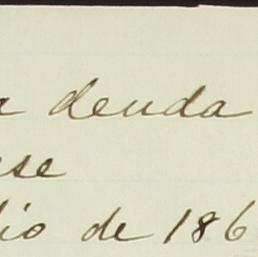 a deuda
se
lio de 186